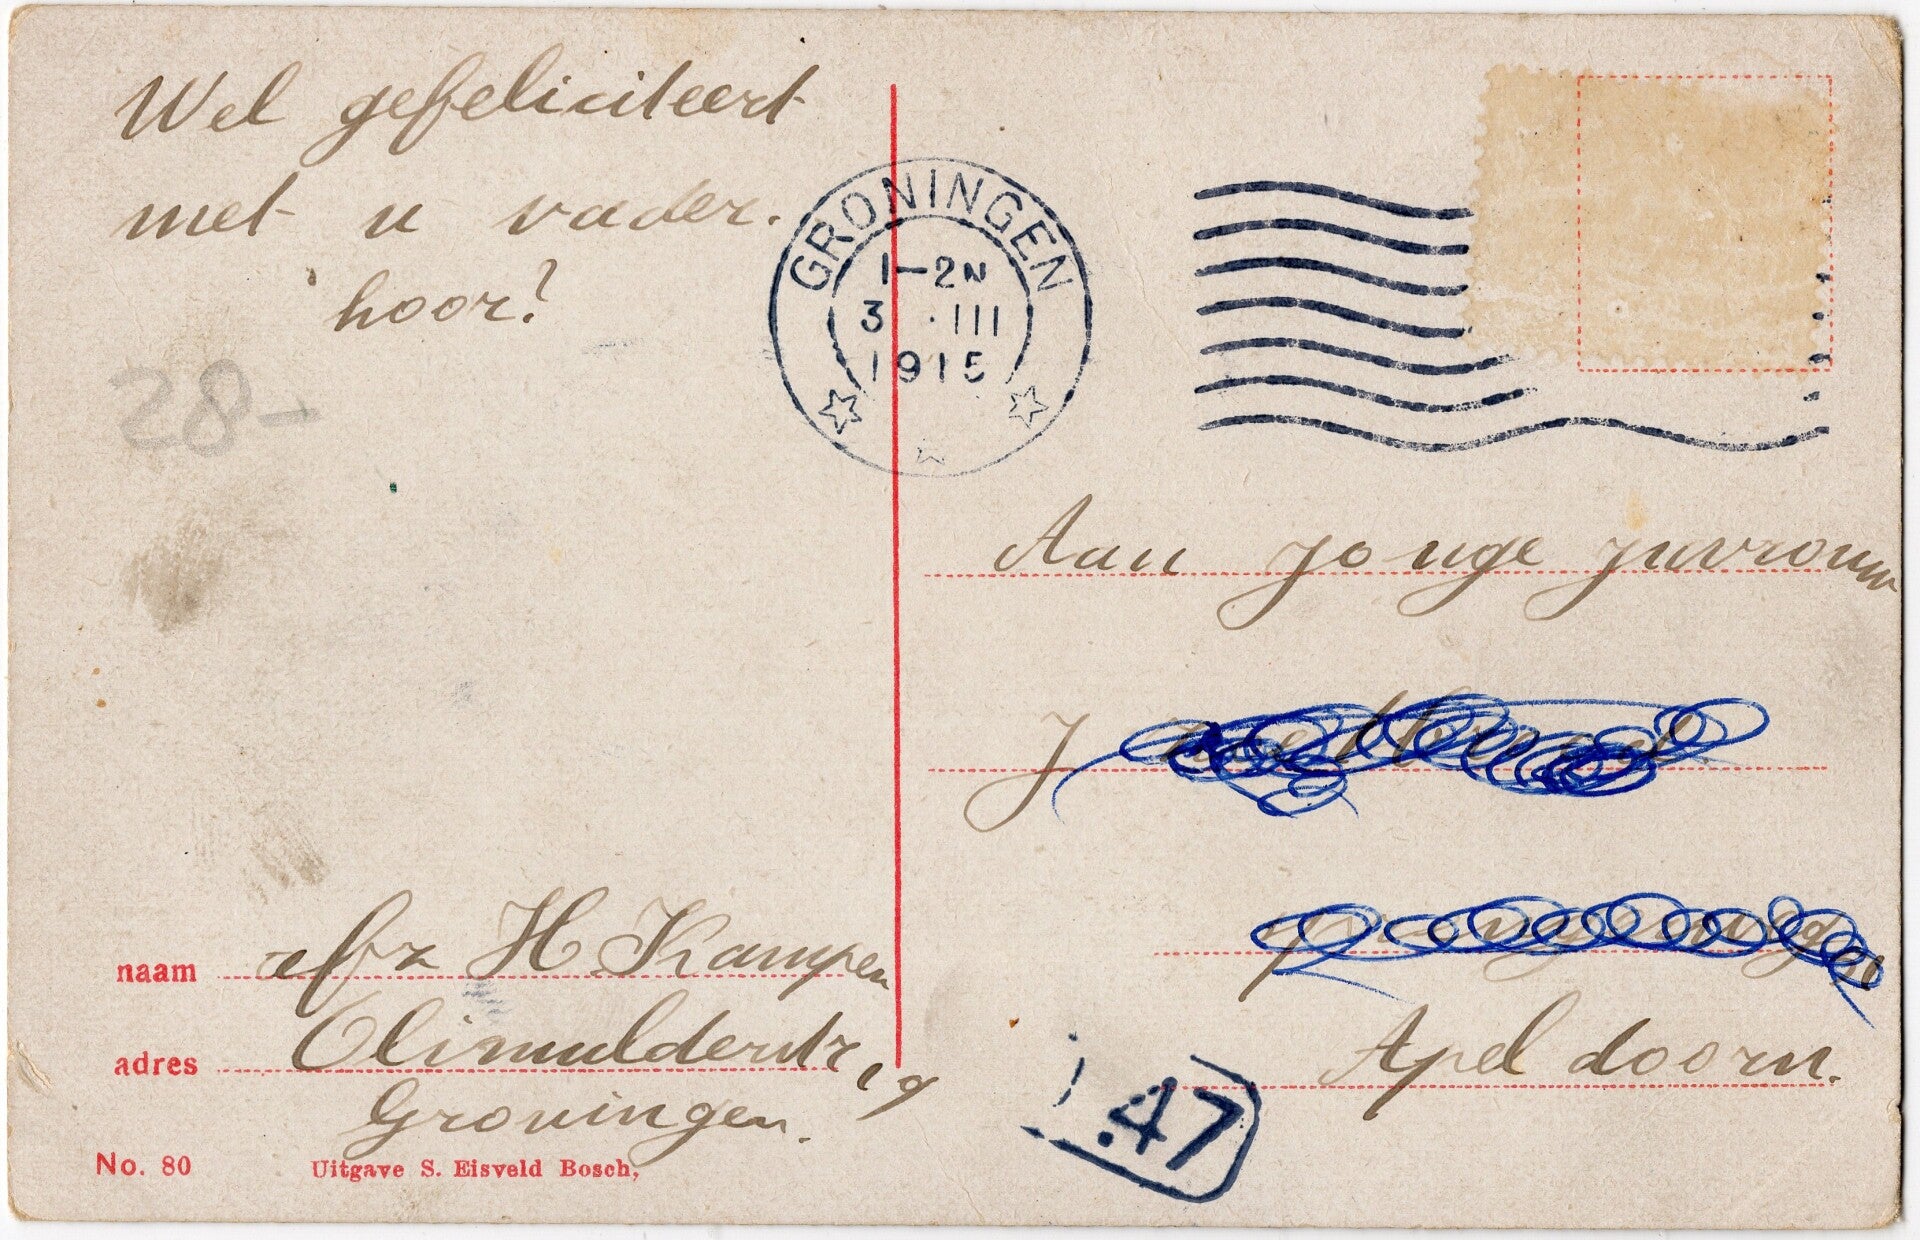 Wel gefeliciteert
met u vader.
hoor?
28-
GRONINGEN
1-2N
3 .III
1915
Aan jonge juvrouw
J
Apeldoorn.
.47
naam afz H Kampen
adres Olimulderstr 19
Groningen.
No. 80 Uitgave S. Eisveld Bosch,